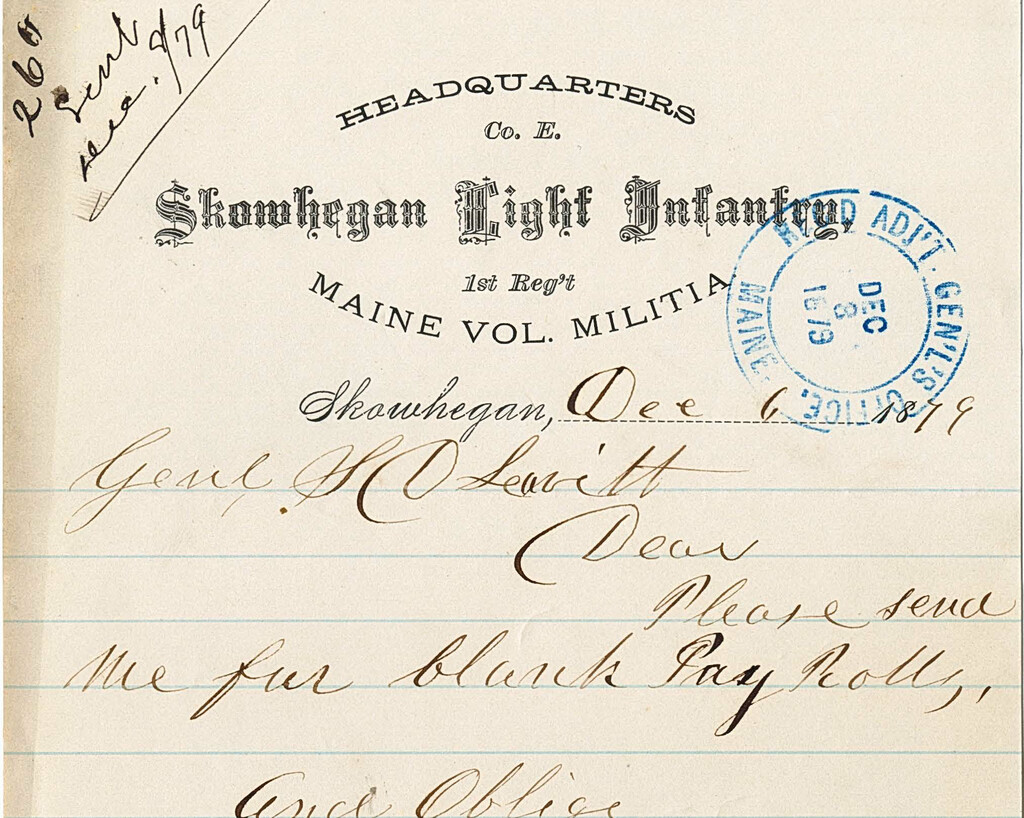 260
Sent
Dec. 8/79
HEADQUARTERS
Co. E.
Skowhegan Light Infantry,
1st Reg't
MAINE VOL. MILITIA
H'D Q'D ADJ'T. GEN'L'S OFFICE. MAINE.
DEC
8
1879
Skowhegan, Dec 6 1879
Genl, S D Leavitt
Dear
Please send
me fur blank Pay Rolls,
and Oblige